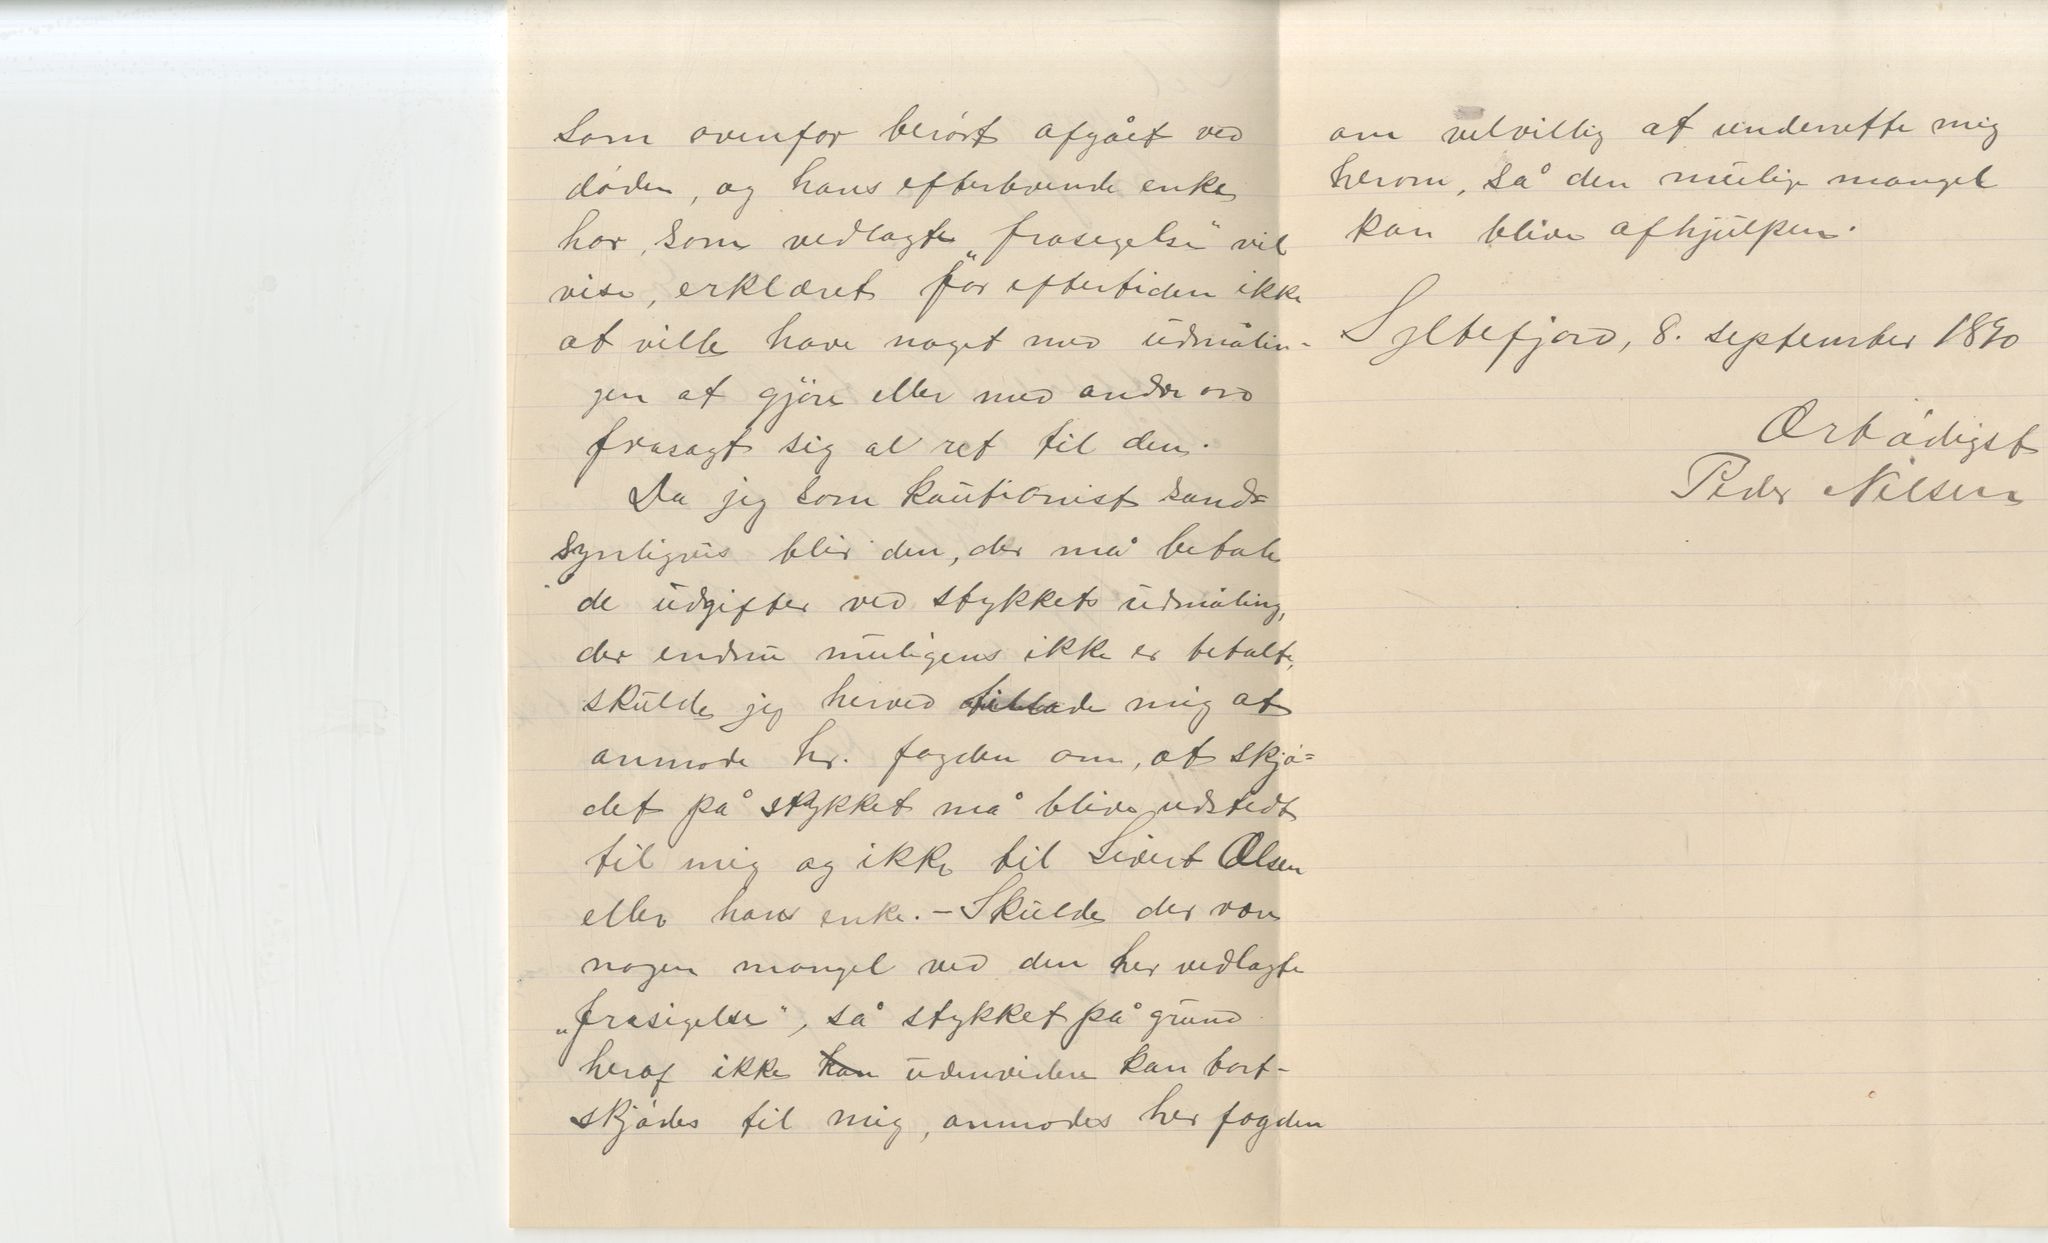 som ovenfor berørt afgået ved
døden, og hans efterlevende enke
har, som vedlagte „frasigelse" vil
vise, erklæret for eftertiden ikke
at ville have noget med udmålin-
gen at gjøre eller med andre ord
frasagt sig al ret til den.
Da jeg som kautionist sand=
synligvis blir den, der må betale
de udgifter ved stykkets udmåling,
der endnu muligens ikke er betalte,
skulde jeg herved tillade mig at
anmode hr. fogden om, at skjø=
det på stykket må blive udstedt
til mig og ikke til Sivert Olsen
eller hans enke. – Skulde der være
nogen mangel ved den her vedlagte
„frasigelse", så stykket på grund
heraf ikke kan udenvidere kan bort-
skjødes til mig, anmodes her fogden
om velvillig at underrette mig
herom, så den mulige mangel
kan blive afhjulpen.
Syltefjord, 8. september 1890
Ærbødigst
Peder Nilsen